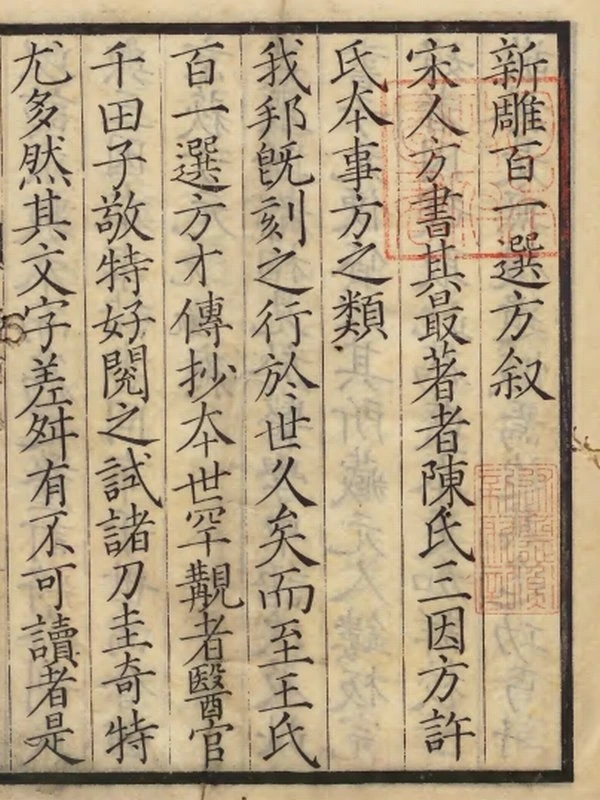 新雕百一選方叙
宋人方書其最著者陳氏三因方許
氏本事方之類
我邦旣刻之行於世久矣而至王氏
百一選方才傳抄本世罕覯者醫官
千田子敬特好閱之試諸刀圭奇特
尤多然其文字差舛有不可讀者是